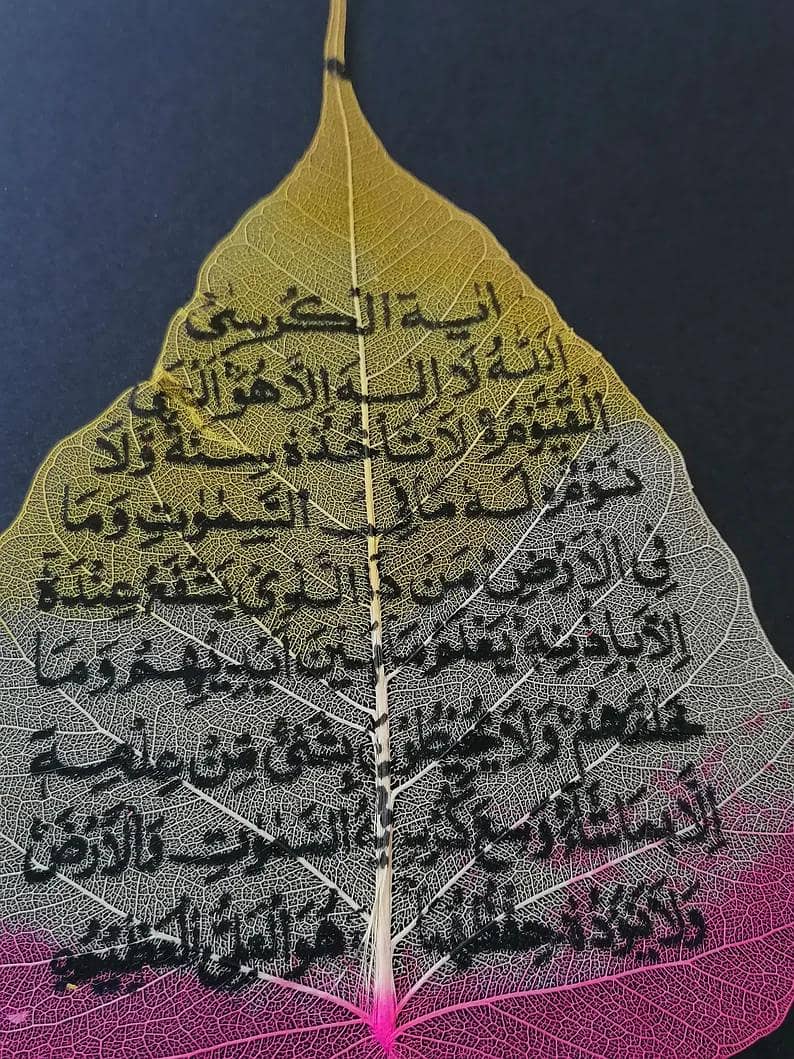 اية الكرسى
اَللّٰهُ لَا اِلٰهَ اِلَّا هُوَ اَلْحَىُّ
الْقَيُّوْمُ لَا تَاْخُذُهٗ سِنَةٌ وَّلَا
نَوْمٌ لَهٗ مَا فِى السَّمٰوٰتِ وَمَا
فِى الْاَرْضِ مَنْ ذَا الَّذِىْ يَشْفَعُ عِنْدَهٗ
اِلَّا بِاِذْنِهٖ يَعْلَمُ مَا بَيْنَ اَيْدِيْهِمْ وَمَا
خَلْفَهُمْ وَلَا يُحِيْطُوْنَ بِشَىْءٍ مِّنْ عِلْمِهٖ
اِلَّا بِمَا شَآءَ وَسِعَ كُرْسِيُّهُ السَّمٰوٰتِ وَالْاَرْضَ
وَلَا يَـُٔوْدُهٗ حِفْظُهُمَا وَهُوَ الْعَلِىُّ الْعَظِيْمُ